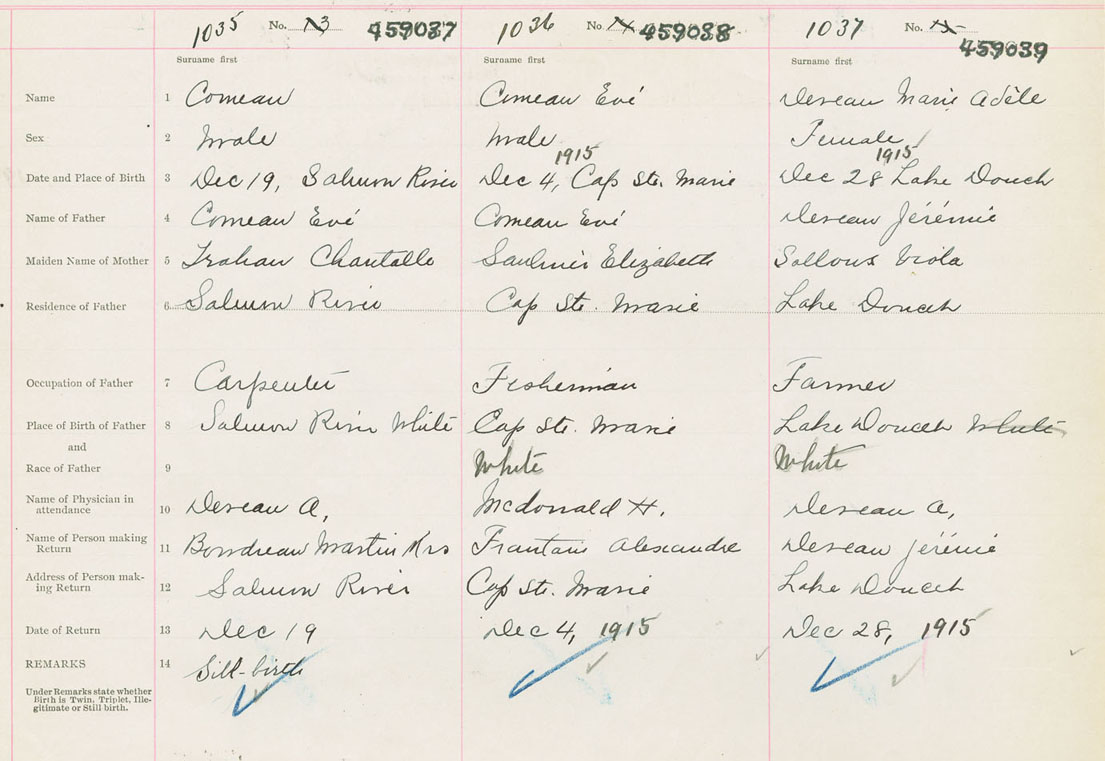 1035 No. 13 459037 1036 No. 14 459038 1037 No. 15 459039
Surname first Surname first Surname first
Name 1 Comeau Comeau Evé Deveau Marie Adèle
Sex 2 Male Male Female
1915 1915
Date and Place of Birth 3 Dec 19, Salmon River Dec 4, Cap Ste. Marie Dec 28 Lake Doucet
Name of Father 4 Comeau Evé Comeau Evé Deveau Jérémie
Maiden Name of Mother 5 Trahan Chantalle Saulnier Elizabeth Sollows Viola
Residence of Father 6 Salmon River Cap Ste. Marie Lake Doucet
Occupation of Father 7 Carpenter Fisherman Farmer
Place of Birth of Father 8 Salmon River White Cap Ste. Marie Lake Doucet White
and
Race of Father 9 White White
Name of Physician in
attendance 10 Deveau A, Mcdonald H. Deveau A,
Name of Person making
Return 11 Boudreau Martin Mrs Alexandre Deveau Jérémie
Address of Person mak-
ing Return 12 Salmon River Cap Ste. Marie Lake Doucet
Date of Return 13 Dec 19 Dec 4, 1915 Dec 28, 1915
REMARKS 14 Sill-birth
Under Remarks state whether
Birth is Twin, Triplet, Ille-
gitimate or Still birth.